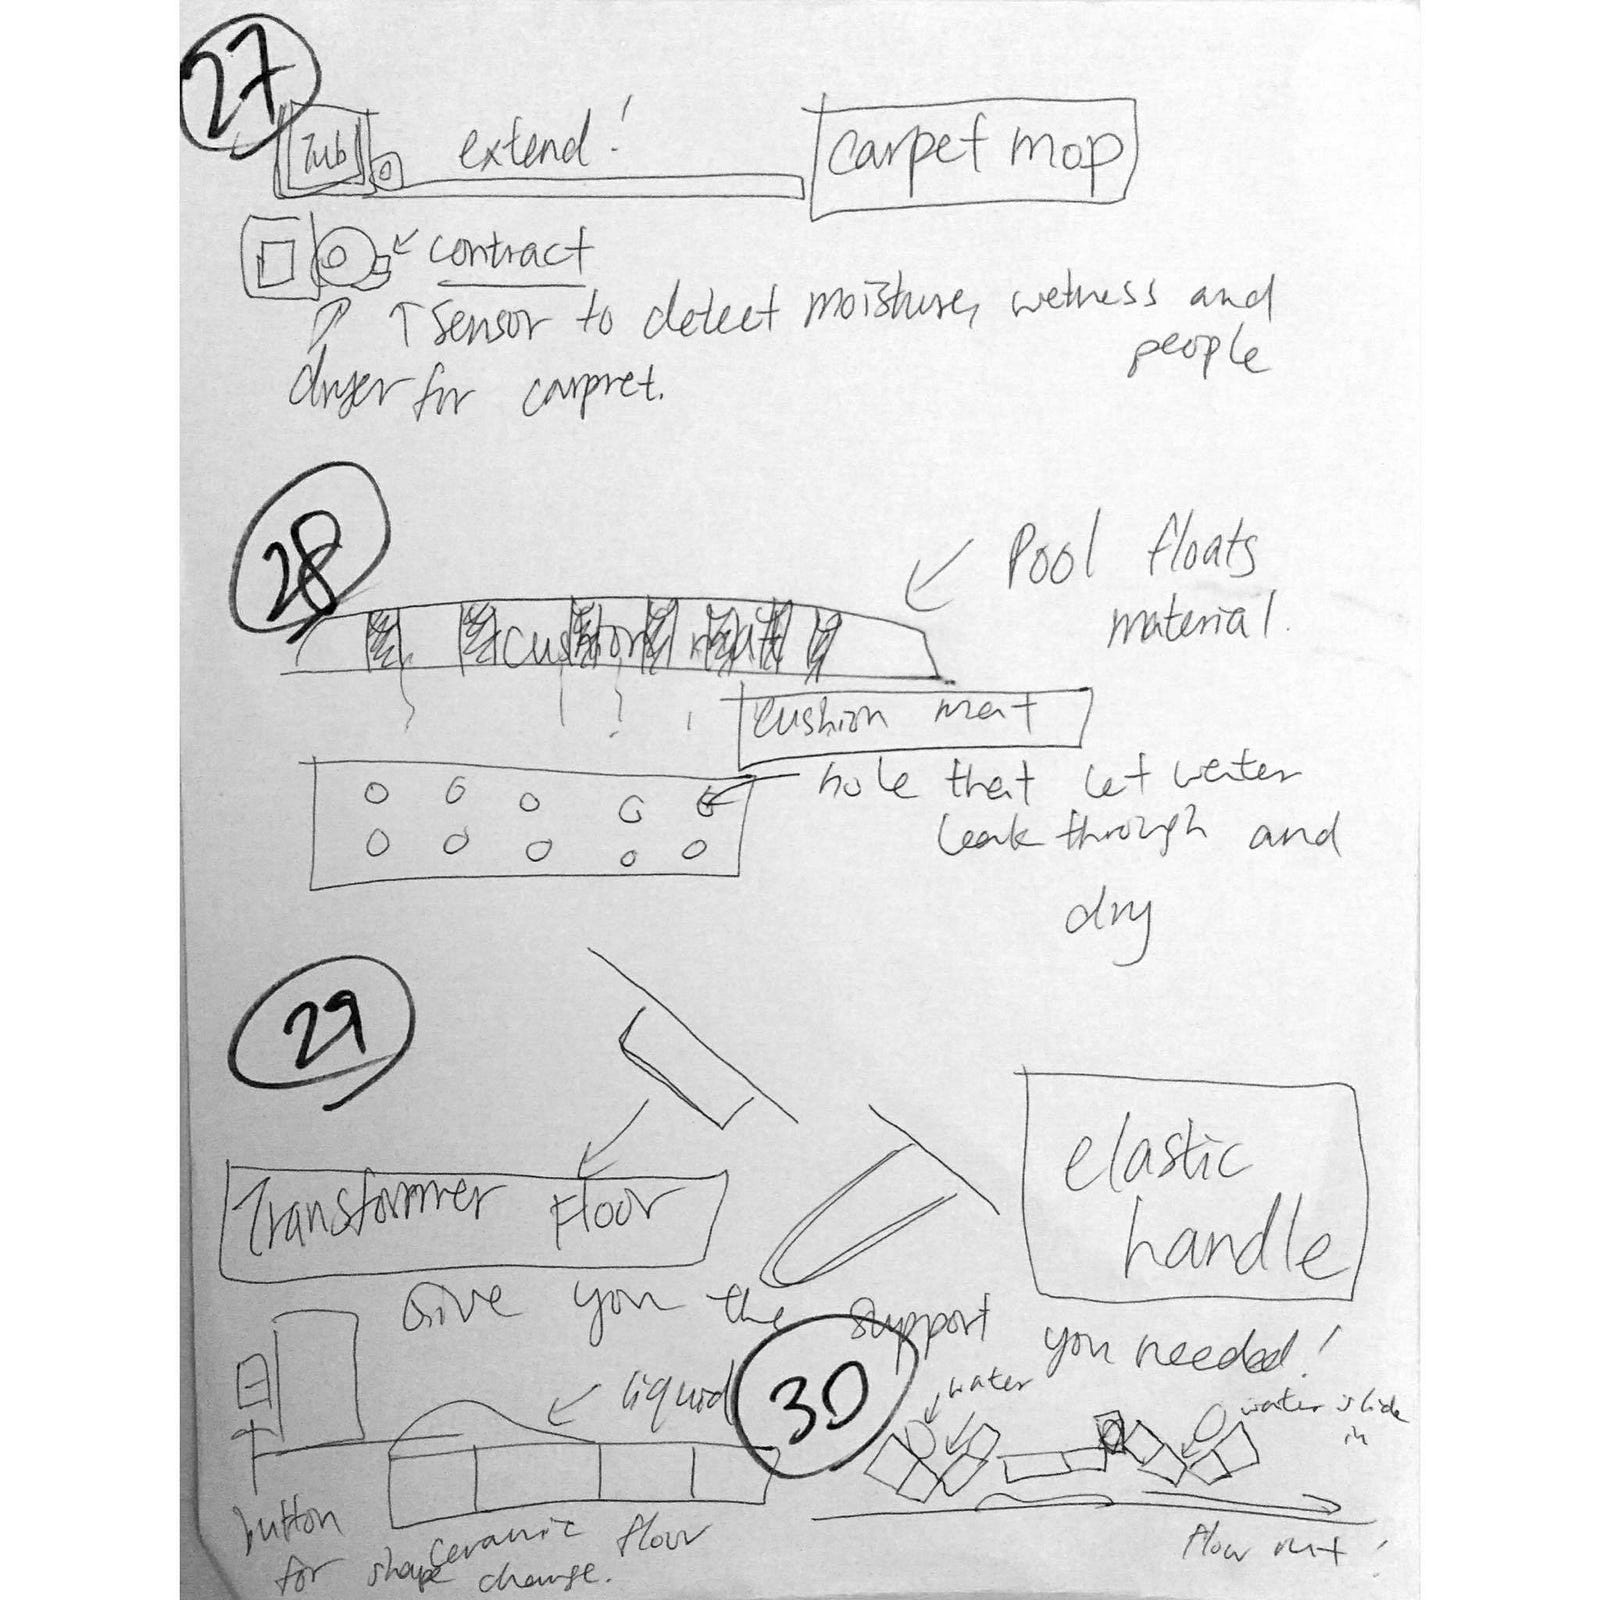 27
Tub
extend!
carpet mop
contract
sensor to detect moisture, wetness and
people
dryer for carpret.
28
Pool floats
material.
cushion mat
cushion mat
hole that let water
leak through and
dry
29
elastic
handle
Transformer Floor
Give you the support you needed!
30
liquid
water
water slide
in
button
for shape change.
ceramic floor
flow out!